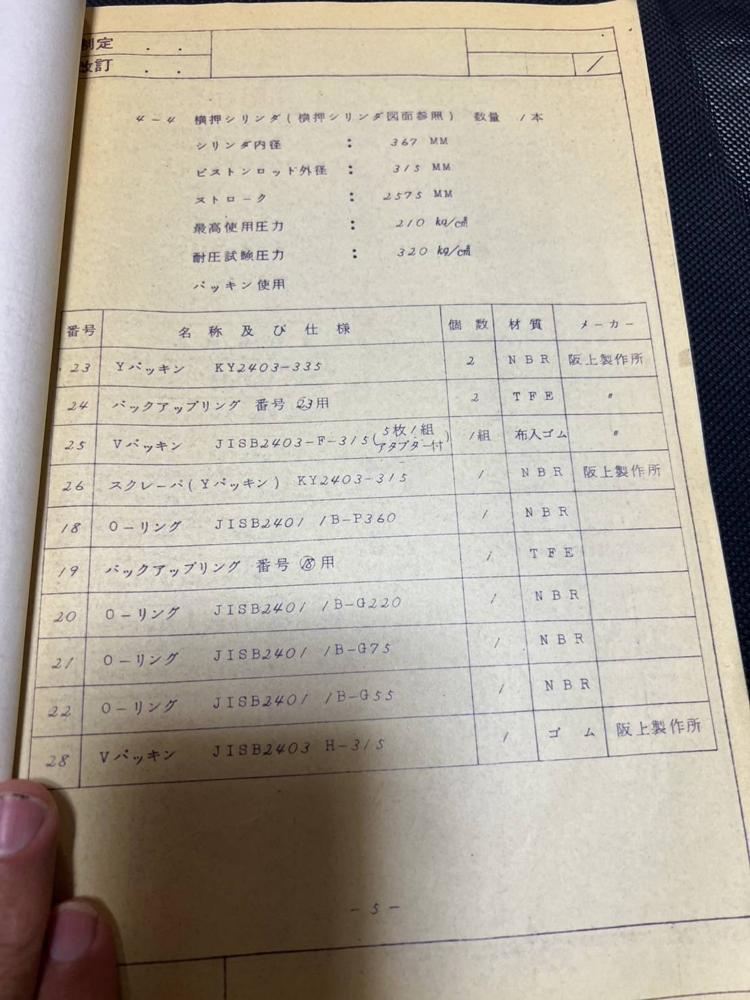 制定 . .
改訂 . .
/
4-4 横押シリンダ(横押シリンダ図面参照) 数量 1本
シリンダ内径 : 367 MM
ピストンロッド外径 : 315 MM
ストローク : 2575 MM
最高使用圧力 : 210 kg/c㎡
耐圧試験圧力 : 320 kg/c㎡
パッキン使用
番号 名称及び仕様 個数 材質 メーカー
23 Yパッキン KY2403-335 2 NBR 阪上製作所
24 バックアップリング 番号 23用 2 TFE 〃
25 Vパッキン JISB2403-F-315(5枚1組アダプター付) 1組 布入ゴム 〃
26 スクレーパ(Yパッキン) KY2403-315 1 NBR 阪上製作所
18 O-リング JISB2401 1B-P360 1 NBR
19 バックアップリング 番号 ⑱用 1 TFE
20 O-リング JISB2401 1B-G220 1 NBR
21 O-リング JISB2401 1B-G75 1 NBR
22 O-リング JISB2401 1B-G55 1 NBR
28 Vパッキン JISB2403 H-315 1 ゴム 阪上製作所
-5-